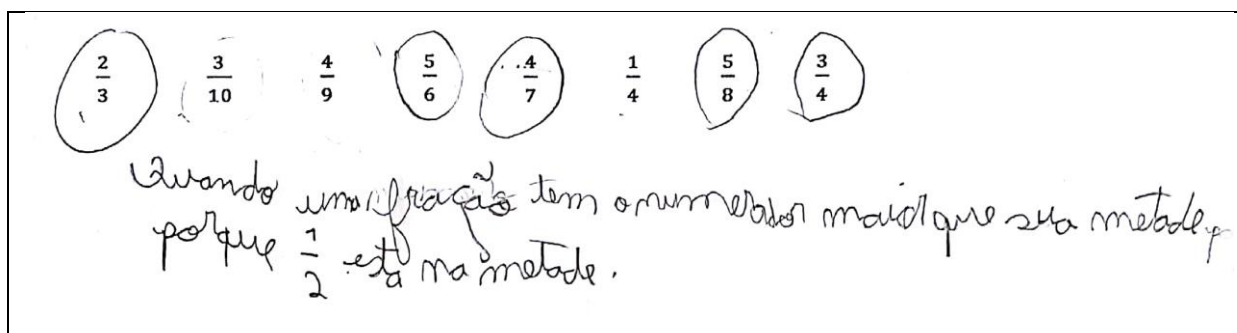 2/3 3/10 4/9 5/6 4/7 1/4 5/8 3/4
Quando uma fração tem o numerador maior que sua metade,
porque 1/2 está na metade.